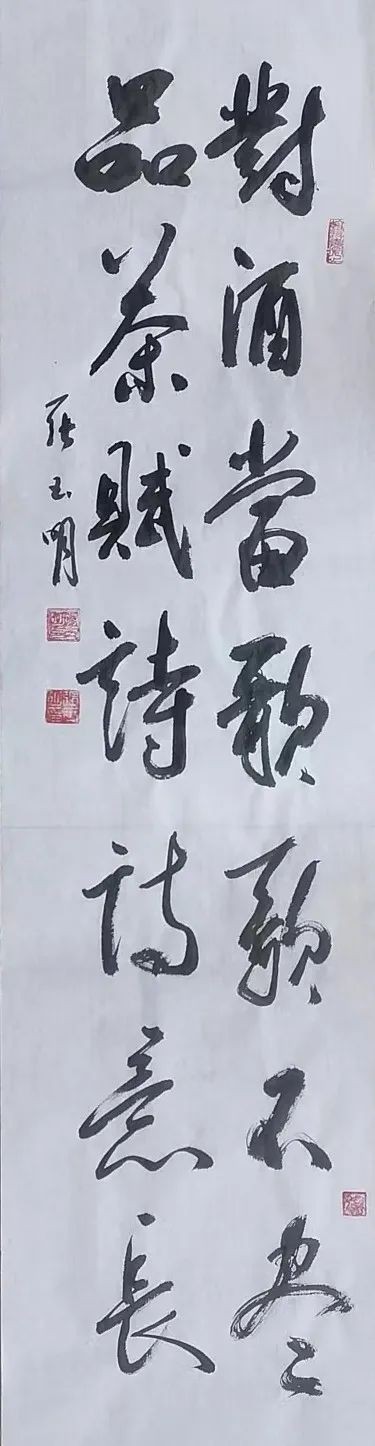 對酒當歌歌不尽
品茶賦詩詩意長
張玉明